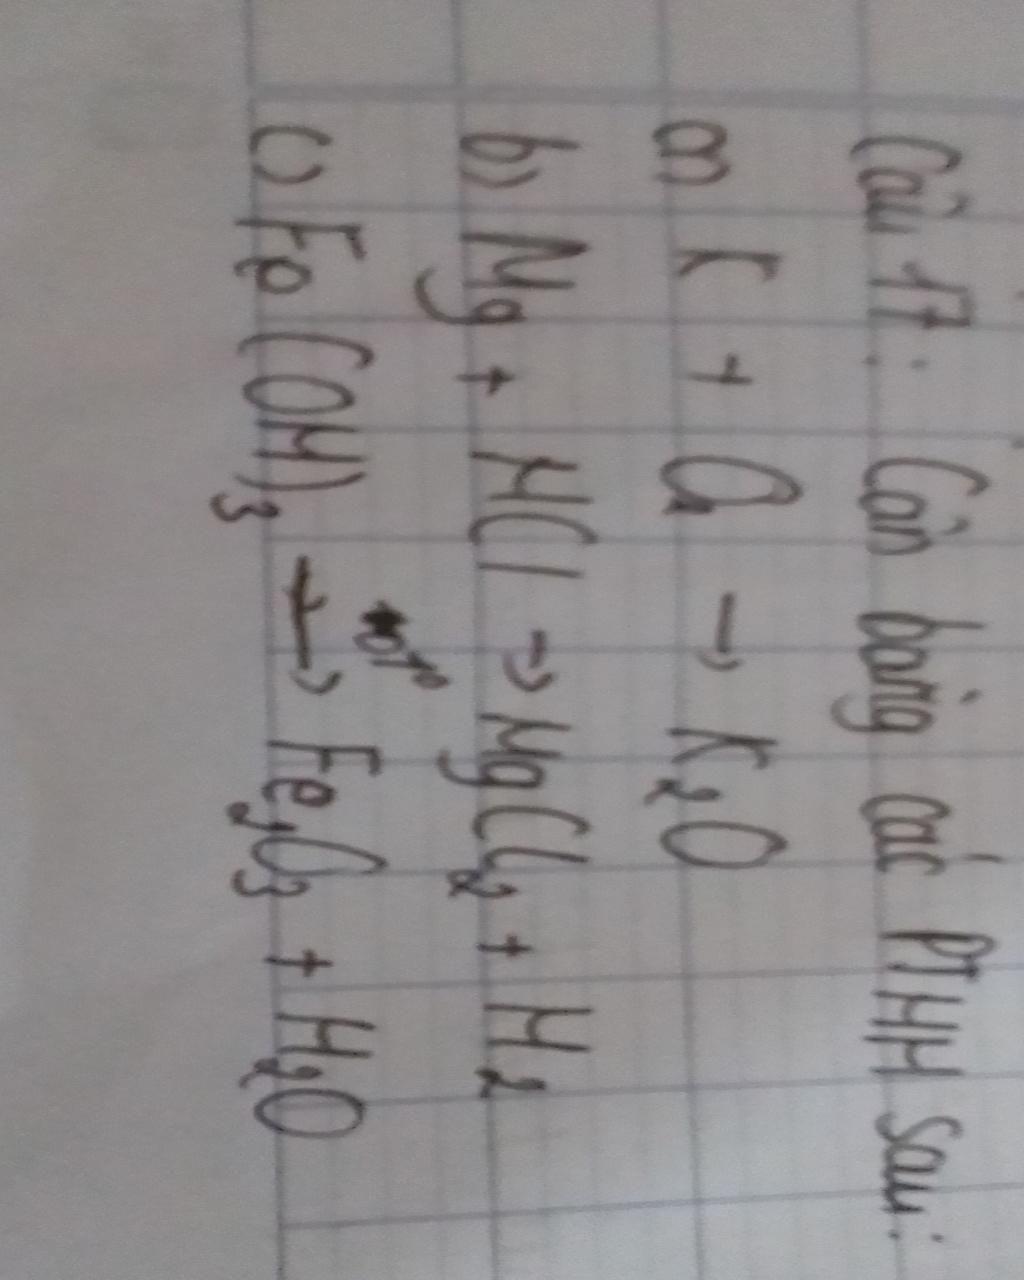 Câu 17: Cân bằng các PTHH sau:
a) K + O₂ → K₂O
b) Mg + HCl → MgCl₂ + H₂
c) Fe(OH)₃ →t° Fe₂O₃ + H₂O